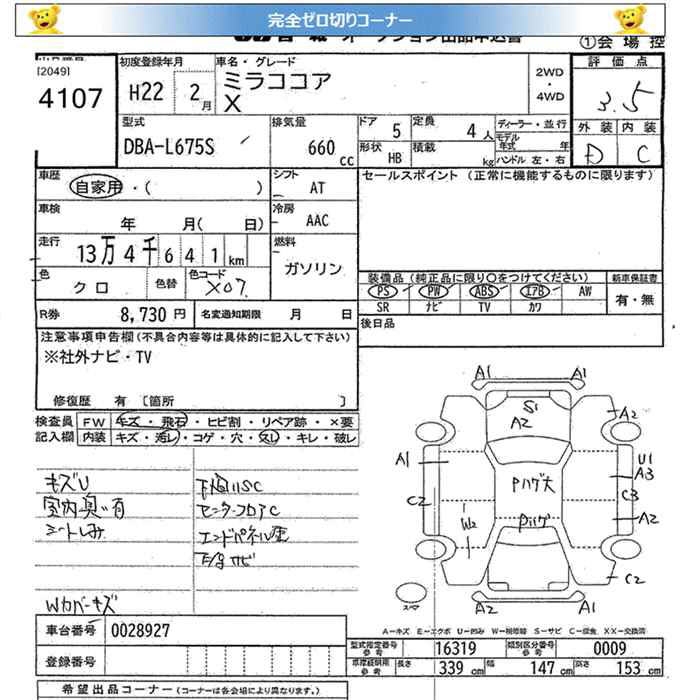 完全ゼロ切りコーナー
オークション出品申込書
①会場控
[2049]
4107
初度登録年月
H22 2月
車名・グレード
ミラココア
X
2WD
・
4WD
評価点
3.5
外装 内装
D C
型式
DBA-L675S
排気量
660 cc
ドア 5
形状 HB
定員 4人
積載 kg
ディーラー・並行
モデル年式 年
ハンドル 左・右
車歴
自家用・( )
シフト AT
車検
年 月( 日)
冷房 AAC
走行
13万4千641km
燃料
ガソリン
色
クロ
色替
色コード
X07
R券 8,730円
名変通知期限 月 日
セールスポイント (正常に機能するものに限ります)
装備品 (純正品に限り○をつけてください)
新車保証書
PS PW ABS エアB AW
有・無
SR ナビ TV カワ
後日品
注意事項申告欄 (不具合内容等は具体的に記入して下さい)
※社外ナビ・TV
修復歴 有 [箇所 ]
検査員記入欄
FW キズ・飛石・ヒビ割・リペア跡・×要
内装 キズ・汚レ・コゲ・穴・スレ・キレ・破レ
キズU
室内臭い有
シートしみ
Wカバーキズ
下廻りSC
センターフロアC
エンドパネル歪
下廻サビ
A1 A1
S1
A2
A2
A1
U1
A3
Pハゲ大
C2
C3
W2
Pハゲ
A2
C2
スペア
A2 A1
A-キズ E-エクボ U-凹み W-補修跡 S-サビ C-腐食 XX-交換済
車台番号 0028927
登録番号
型式指定番号 参考 16319
類別区分番号 参考 0009
車庫証明用 参考
長さ 339cm
幅 147cm
高さ 153cm
希望出品コーナー (コーナーは各会場により異なります。)